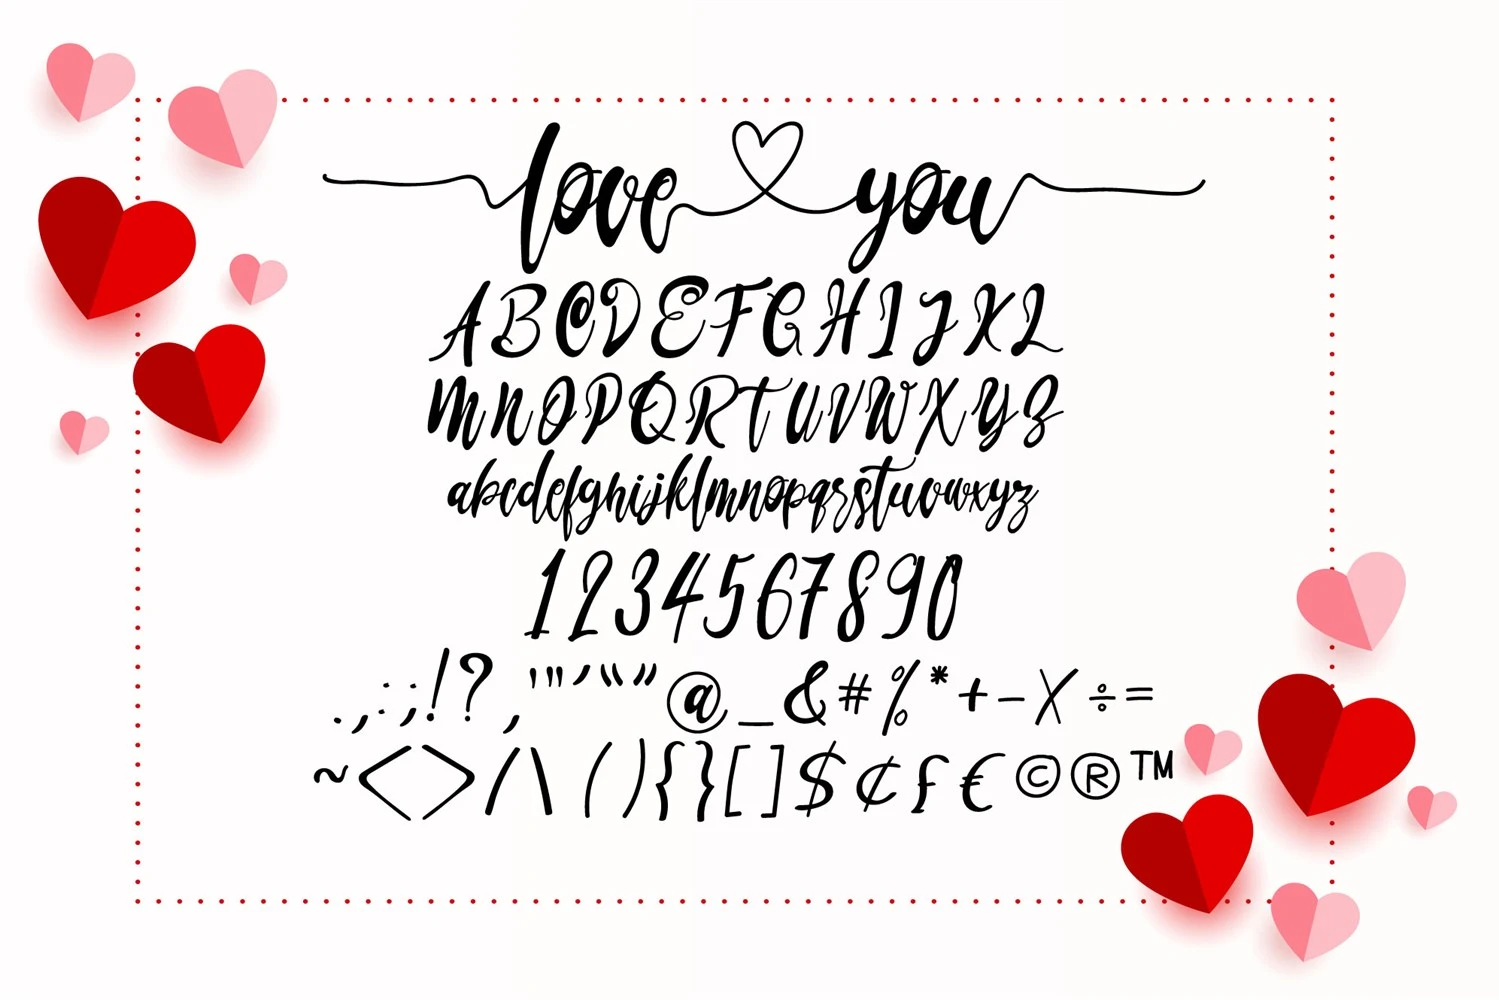 love you
ABCDEFGHIJKL
MNOPQRTUVWXYZ
abcdefghijklmnopqrstuvwxyz
1234567890
.,:;!?,'"'“”@_&#%*+-X÷=
~<>/\(){}[]$¢£€©®™